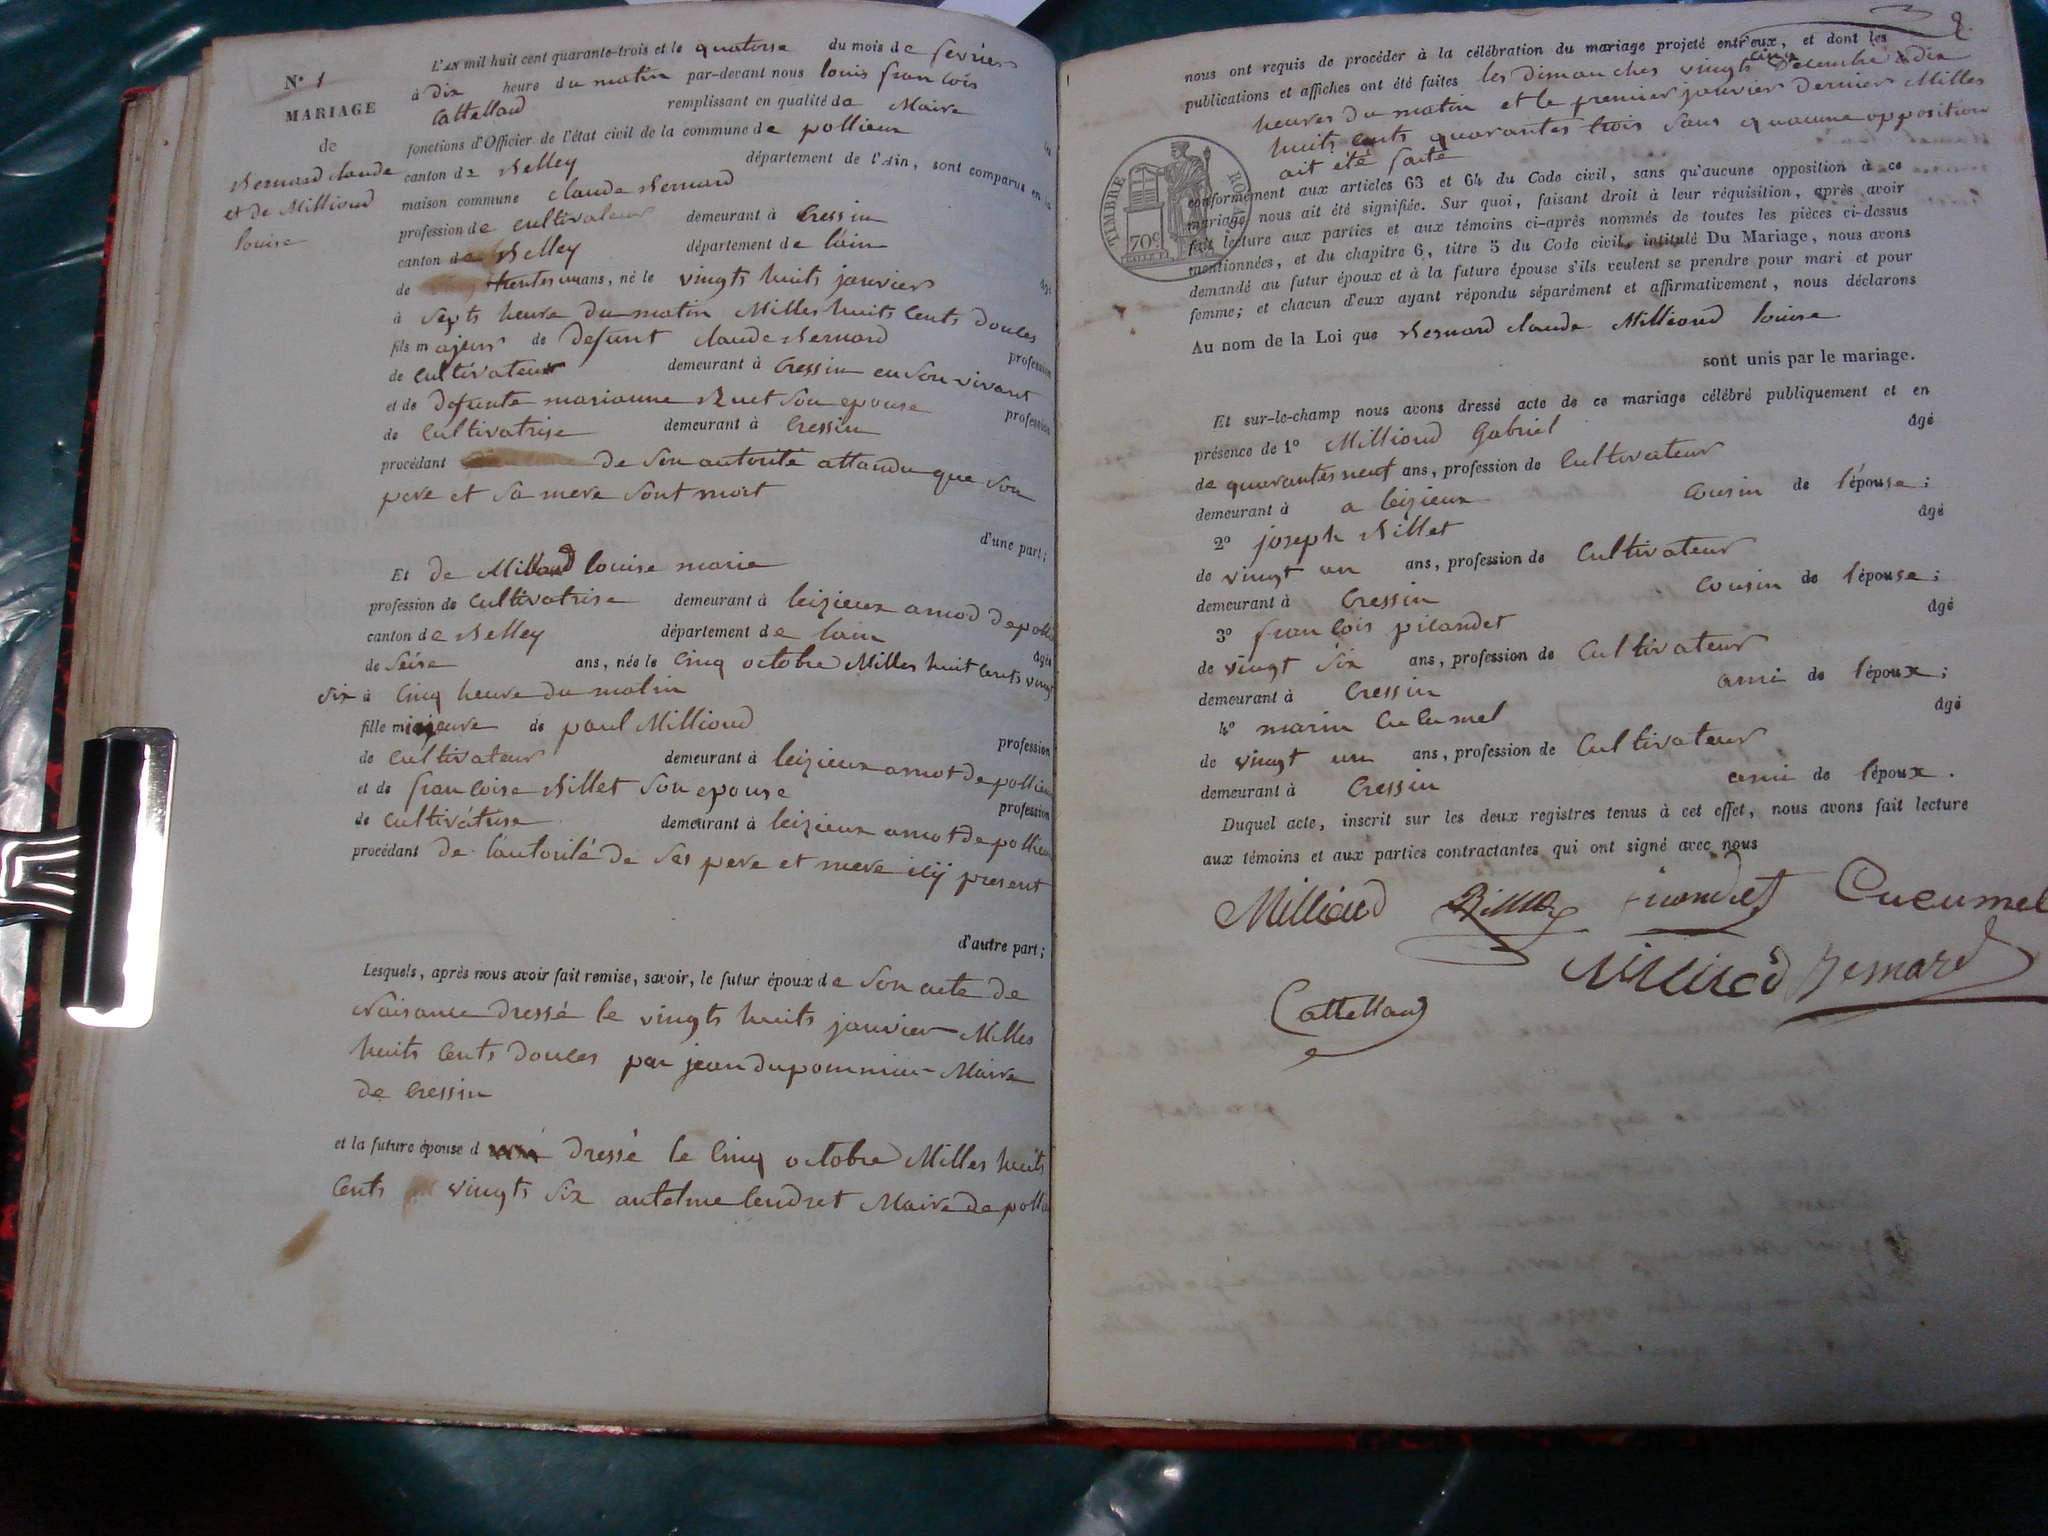 N° 1
MARIAGE
de
Bernard claude
et de Milliond
louise
L'AN mil huit cent quarante-trois et le quatorse du mois de fevrier
à dix heure du matin par-devant nous louis francois
Cattelland remplissant en qualité de Maire
fonctions d'Officier de l'état civil de la commune de pollieux
canton de Belley département de l'Ain, sont comparus en la
maison commune claude Bernard
profession de cultivateur demeurant à Cressin
canton de Belley département de lain
de trentes un ans, né le vingts huits janvier âgé
à septs heure du matin Milles huits Cents douces
fils majeur de Defunt claude Bernard
profession
de Cultivateur demeurant à Cressin en son vivant
et de Defunte marianne Ruet Son epouse
profession
de Cultivatrise demeurant à Cressin
procédant de Son autorité attandu que Son
pere et Sa mere Sont mort
d'une part;
Et de Milliond louise marie
profession de Cultivatrise demeurant à leizieux amod de polli
canton de Belley département de lain
âgée
de Seise ans, née le Cinq octobre Milles huit Cents vingt
six à Cinq heure du matin
fille mineure de paul Milliond
profession
de Cultivateur demeurant à leizieux amot de pollieu
et de francoise Billet Son epouse
profession
de Cultivatrise demeurant à leizieux amot de pollieu
procédant de l'autorité de Ses pere et mere icy present
d'autre part;
Lesquels, après nous avoir fait remise, savoir, le futur époux de Son acte de
Naisance dressé le vingts huits janvier Milles
huits Cents douces par jean dupommier Maire
de Cressin
et la future épouse d dressé le Cinq octobre Milles huits
Cents vingts Six antelme lendret Maire de polli
8.
nous ont requis de procéder à la célébration du mariage projeté entr'eux, et dont les
publications et affiches ont été faites les dimanches vingts cinq Decembre à dix
heures du matin et le premier janvier dernier Milles
huits Cents quarantes trois Sans quaucune opposition
ait été faite
TIMBRE ROYAL
70c
conformément aux articles 63 et 64 du Code civil, sans qu'aucune opposition à ce
mariage nous ait été signifiée. Sur quoi, faisant droit à leur réquisition, après avoir
fait lecture aux parties et aux témoins ci-après nommés de toutes les pièces ci-dessus
mentionnées, et du chapitre 6, titre 5 du Code civil, intitulé Du Mariage, nous avons
demandé au futur époux et à la future épouse s'ils veulent se prendre pour mari et pour
femme; et chacun d'eux ayant répondu séparément et affirmativement, nous déclarons
Au nom de la Loi que Bernard claude Milliond louise
sont unis par le mariage.
Et sur-le-champ nous avons dressé acte de ce mariage célébré publiquement et en
présence de 1° Milliond Gabriel âgé
de quarantes neuf ans, profession de Cultivateur
demeurant à a leizieux cousin de l'épouse;
2° joseph Billet âgé
de vingt un ans, profession de Cultivateur
demeurant à Cressin cousin de l'épouse;
3° francois picandet âgé
de vingt Six ans, profession de Cultivateur
demeurant à Cressin ami de l'époux;
4° marin Cucumel âgé
de vingt un ans, profession de Cultivateur
demeurant à Cressin ami de l'époux.
Duquel acte, inscrit sur les deux registres tenus à cet effet, nous avons fait lecture
aux témoins et aux parties contractantes qui ont signé avec nous
Milliond Billet picandet Cucumel
Milliod Bernard
Cattelland